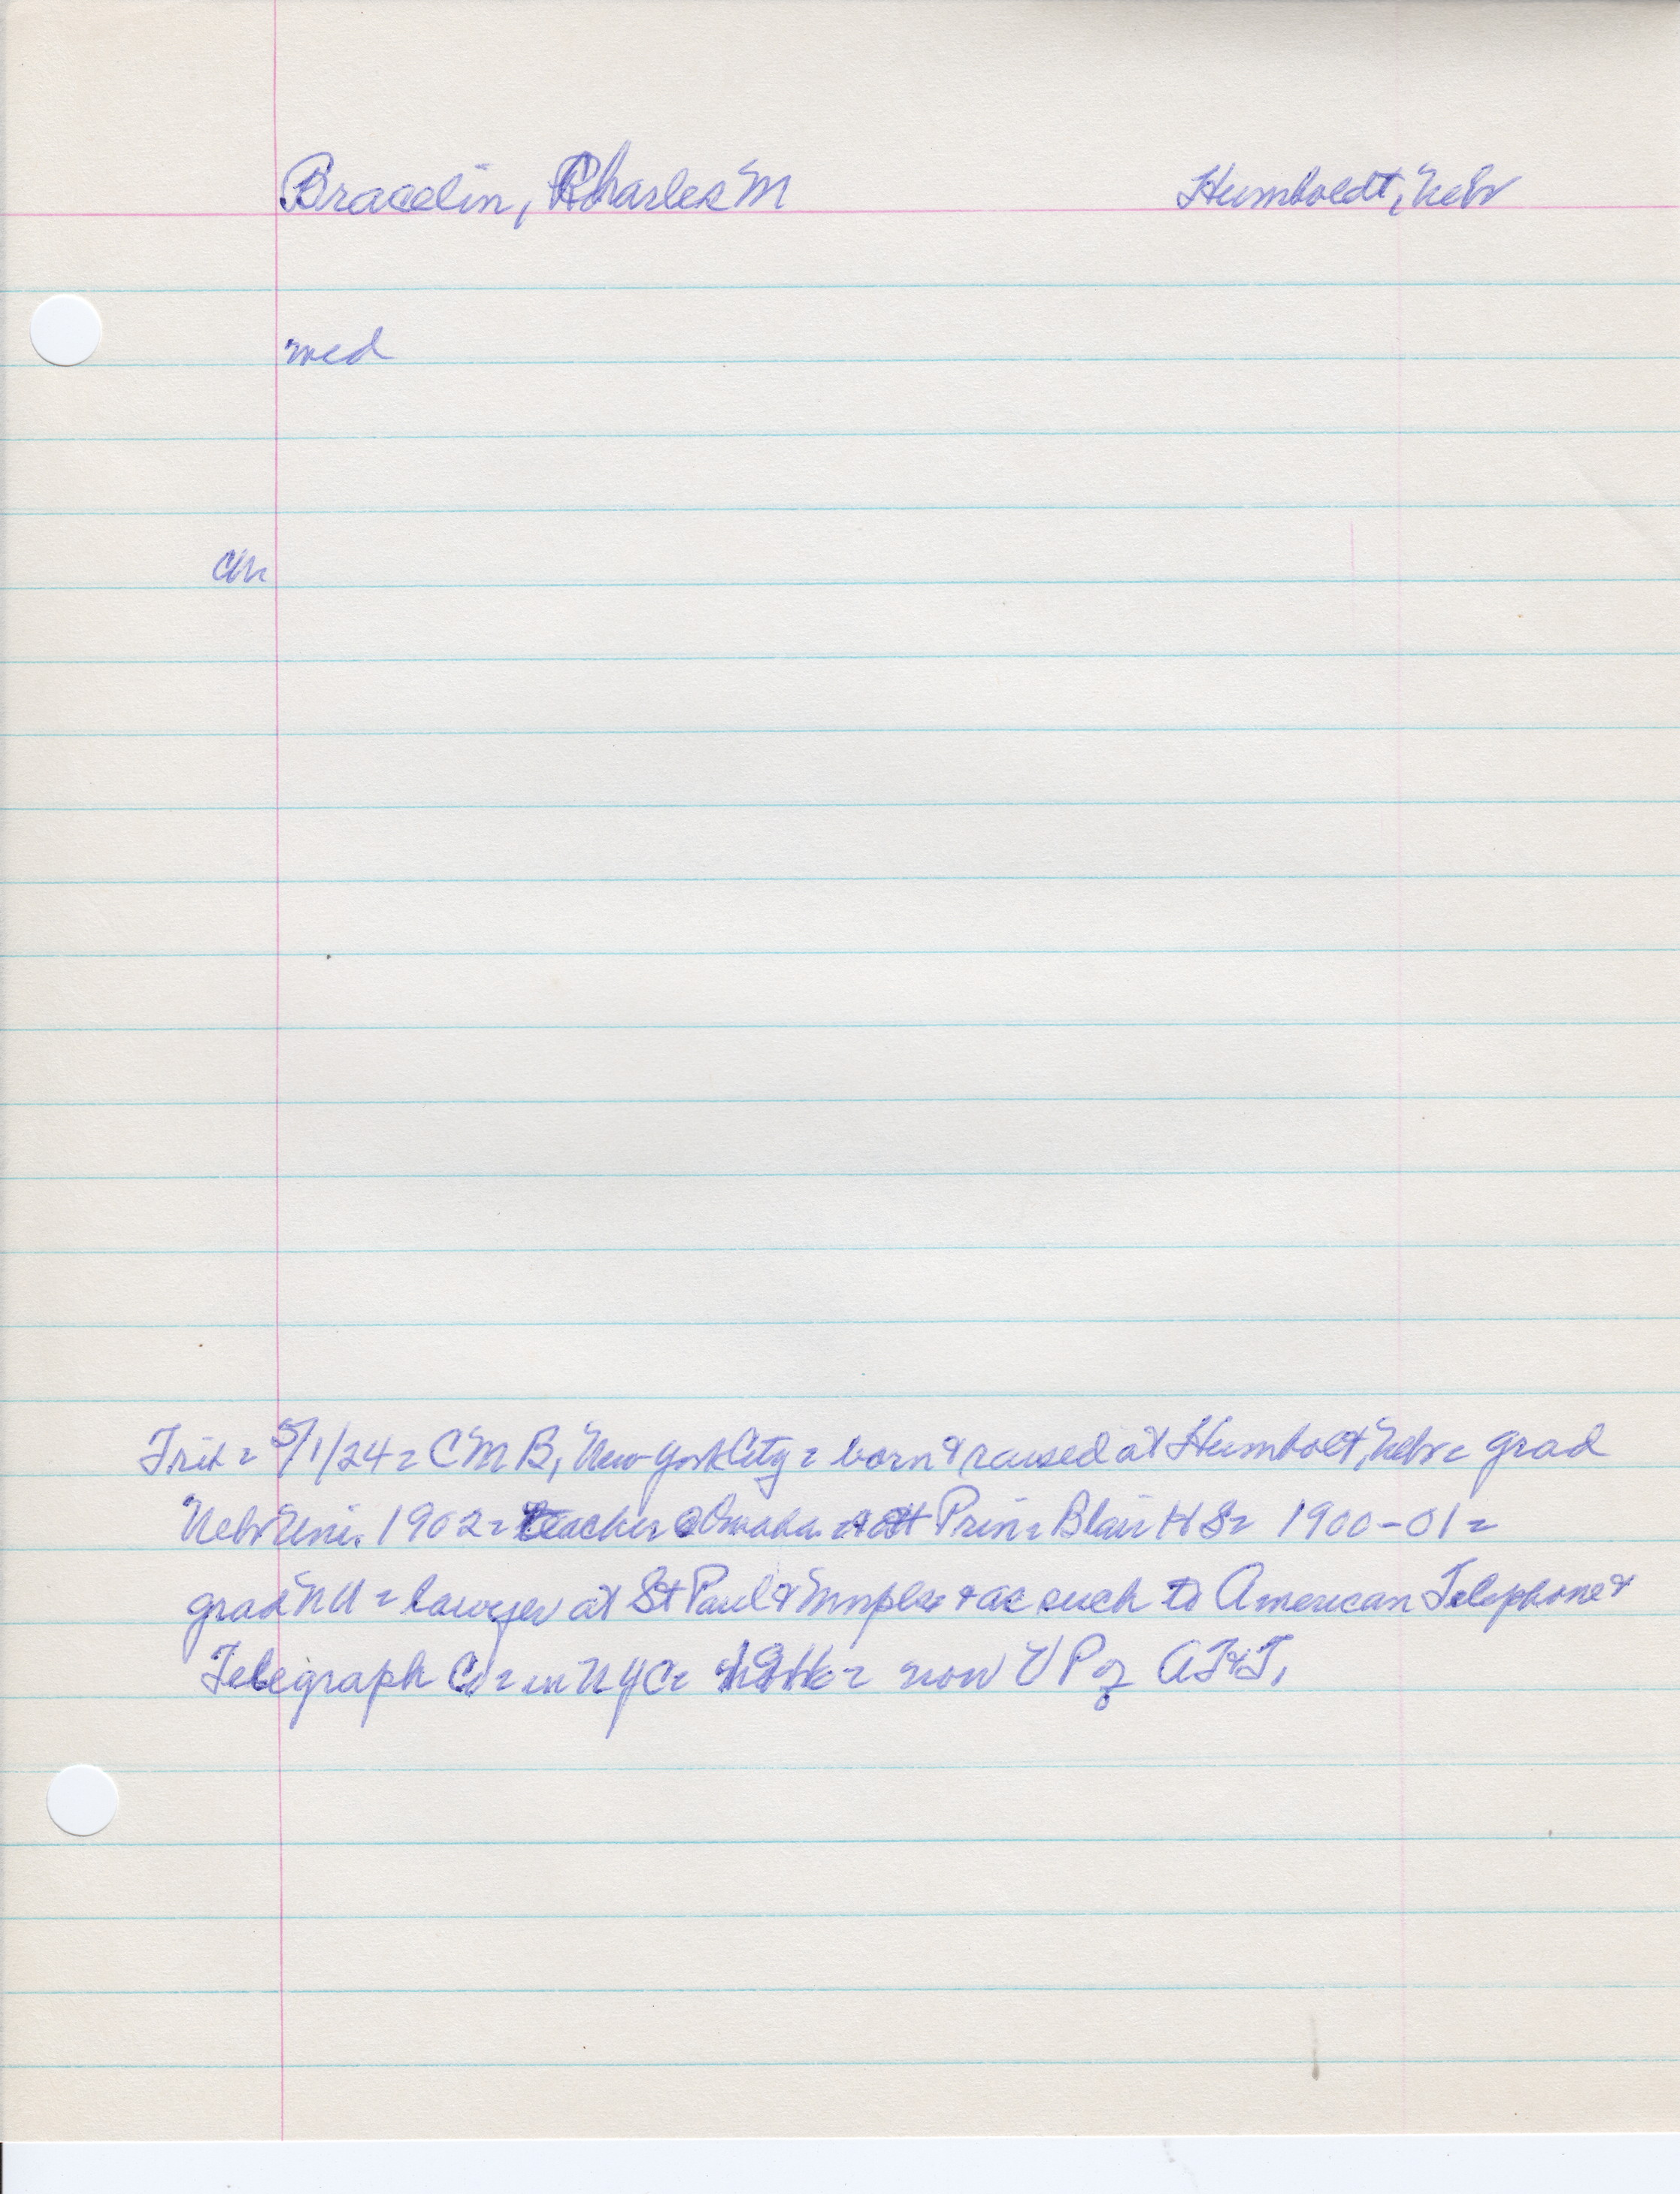 Bracelin, Charles M Humboldt, Nebr
wed
Ch
Trib = 5/1/24 = C M B, New York City = born & raised at Humbolt, Nebr = grad
Nebr Uni. 1902 = teacher Omaha = Prin = Blair H S = 1900-01 =
grad N U = lawyer at St Paul & Mnpls & as such to American Telephone &
Telegraph Co = in N Y C = now V P of A T & T,